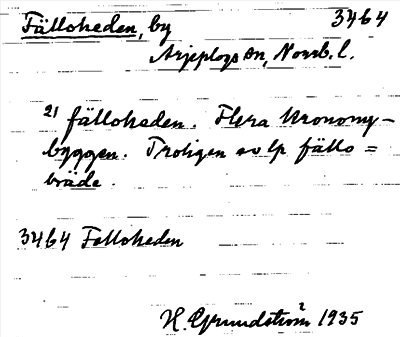 Fälloheden, by 3464
Arjeplogs sn, Norrb. l.
21 fälloheden. Flera kronony-
byggen. Troligen av lp fällo =
bräde.
3464 Falloheden
H. Grundström 1935